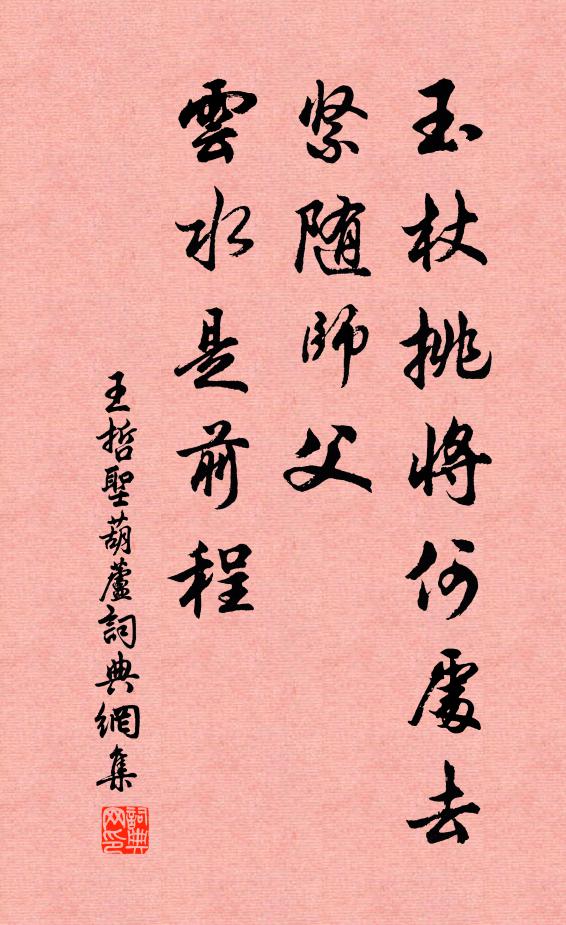 玉杖挑将何處去
紧随師父
雲水是前程
王哲聖葫蘆詞典網集
詞典网印